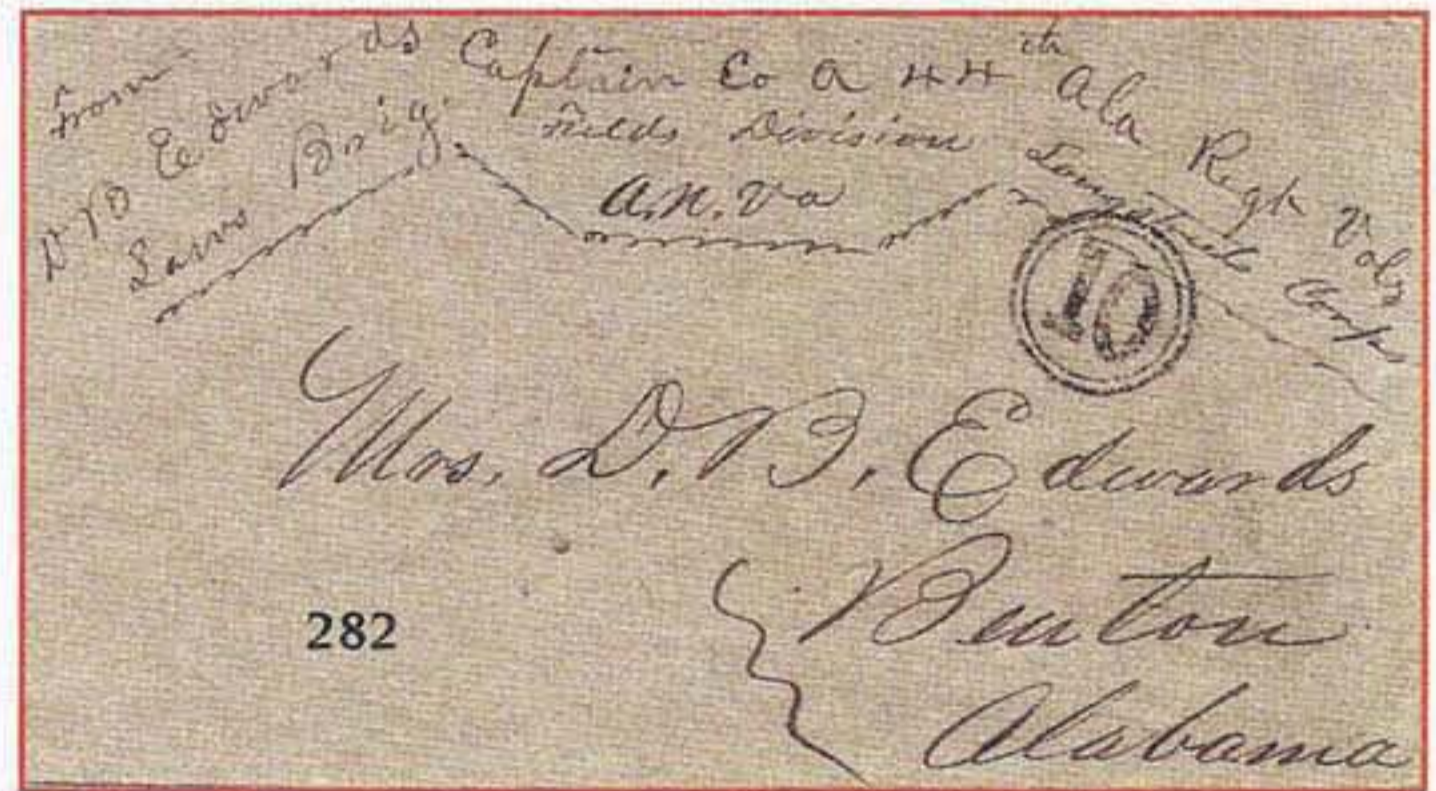 From
D B Edwards Captain Co A 44th Ala Regt Vols
Laws Brig. Fields Division Longstreets Corps
A.N.Va
10
Mrs. D. B. Edwards
Benton
Alabama
282